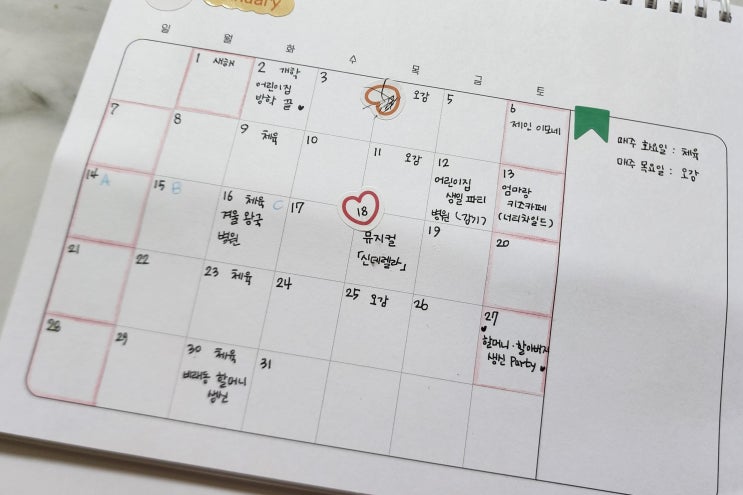 일 월 화 수 목 금 토
1 새해
2 개학
어린이집
방학 끝
3
오감
5
6
제인 이모네
7
8
9 체육
10
11 오감
12
어린이집
생일 파티
병원 (감기)
13
엄마랑
키즈카페
(너티차일드)
14 A
15 B
16 체육 C
겨울 왕국
병원
17
18
뮤지컬
「신데렐라」
19
20
21
22
23 체육
24
25 오감
26
27
할머니·할아버지
생신 Party
28
29
30 체육
할머니
생신
31
매주 화요일 : 체육
매주 목요일 : 오감